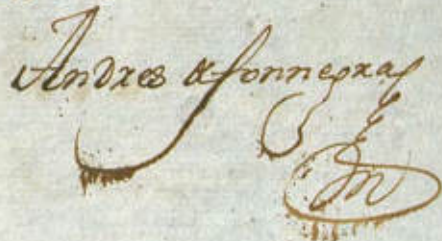 Andres de fonnegra